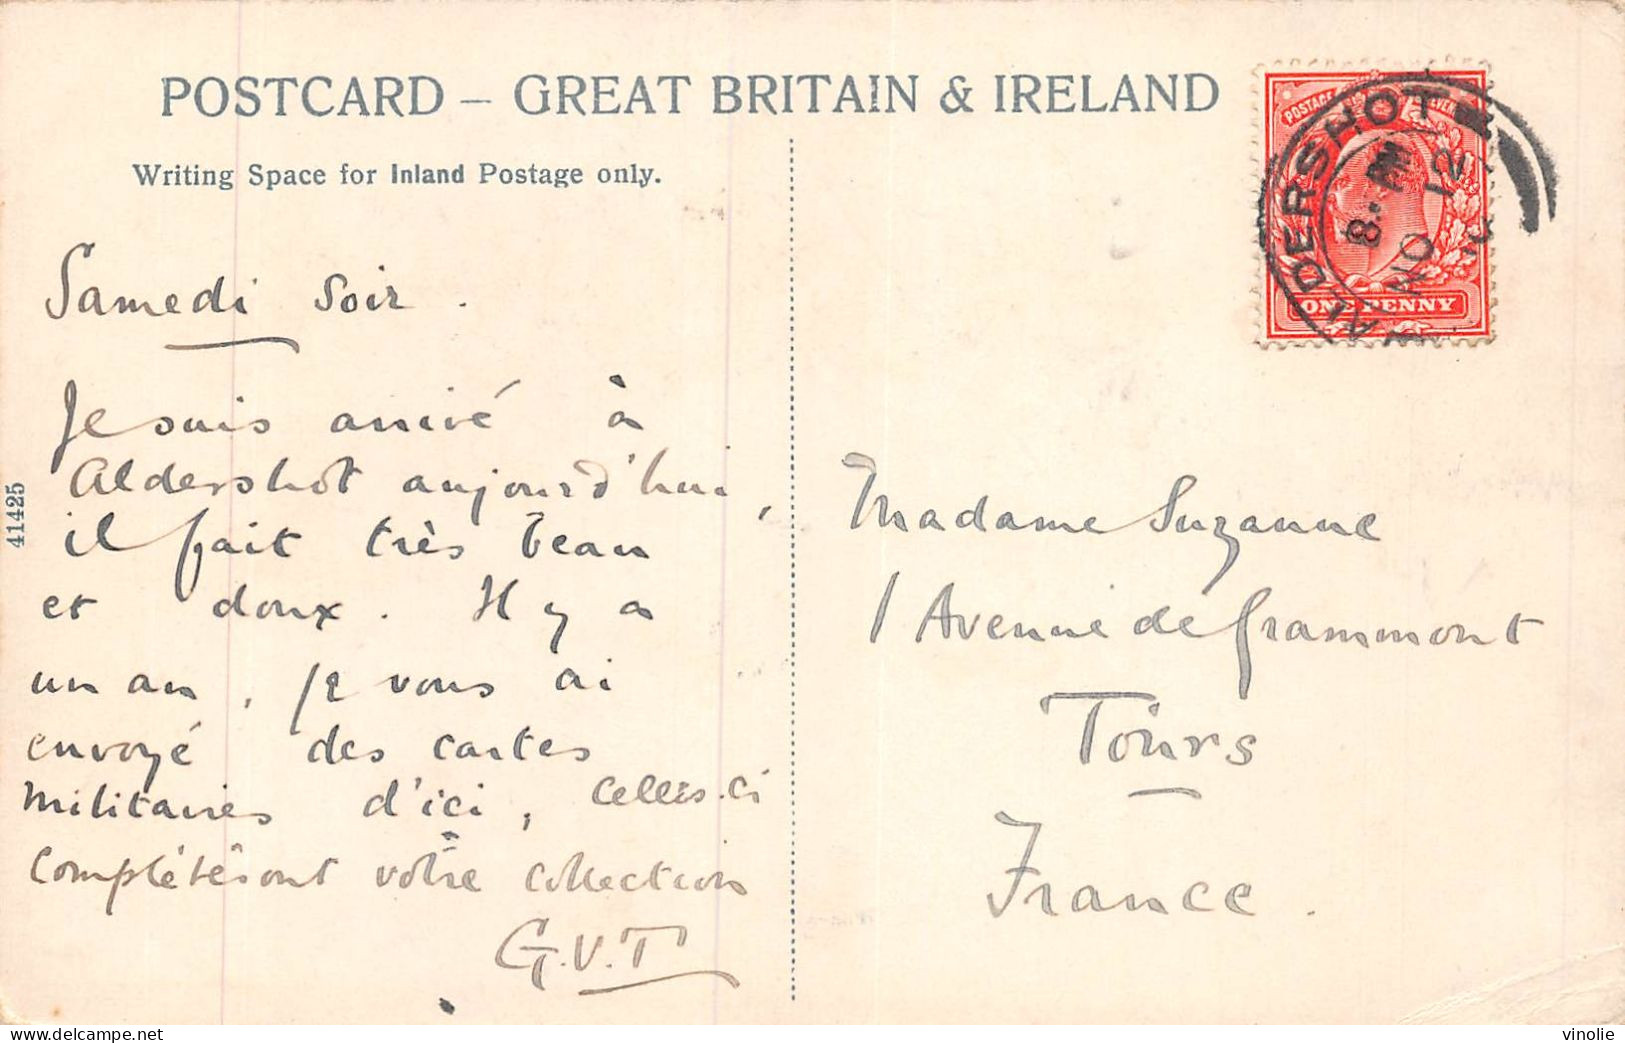 POSTCARD – GREAT BRITAIN & IRELAND
Writing Space for Inland Postage only.
POSTAGE
ONE PENNY
ALDERSHOT
8.
NO 12
Samedi Soir.
Je suis arrivé à
Aldershot aujourd'hui,
il fait très beau
et doux. Il y a
un an, je vous ai
envoyé des cartes
militaires d'ici, celles-ci
complèteront votre collection
G.V.T
41425
Madame Suzanne
1 Avenue de Grammont
Tours
France.
vinolie